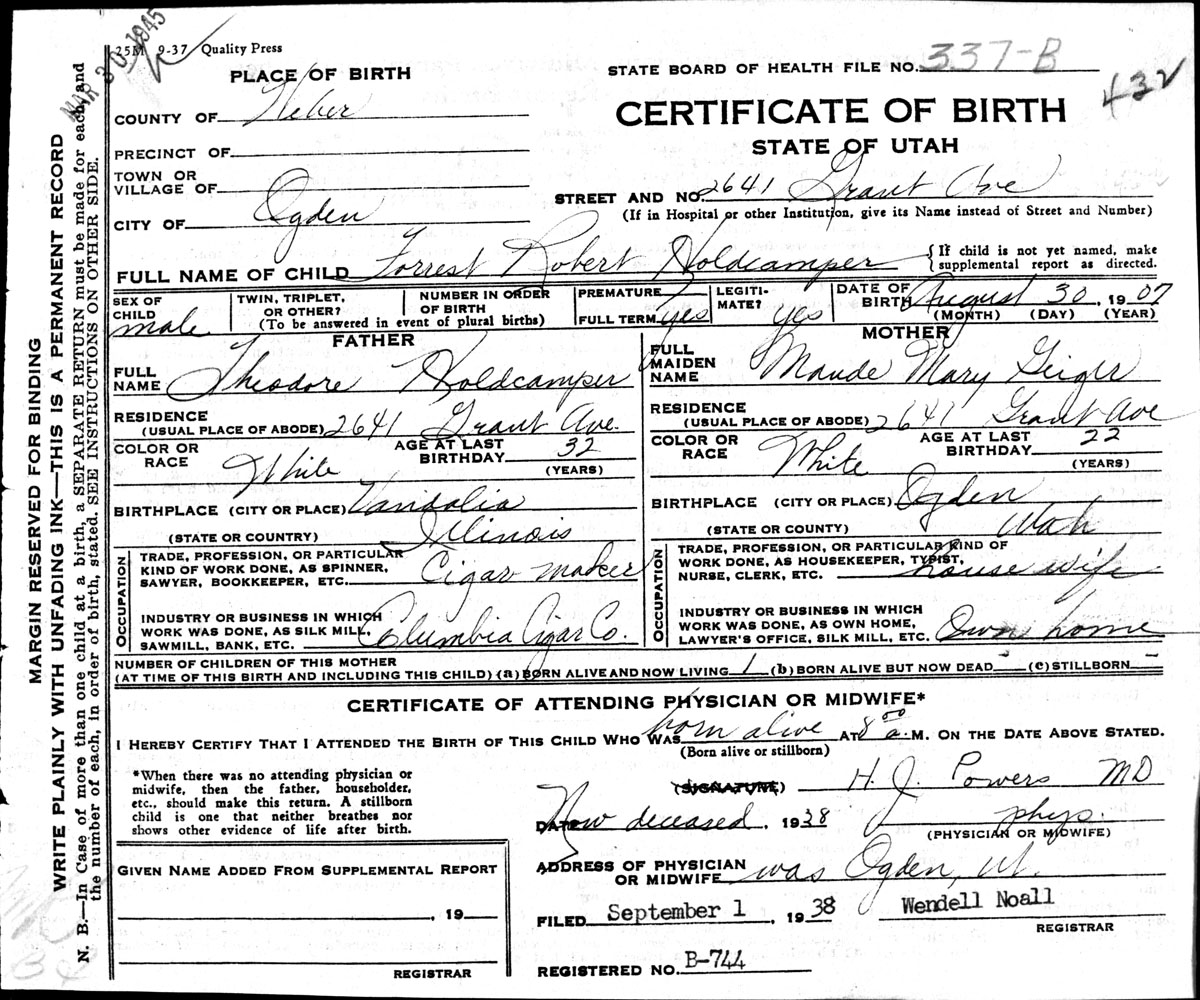 MAR 30 1945
25M 9-37 Quality Press
PLACE OF BIRTH
COUNTY OF Weber
PRECINCT OF
TOWN OR VILLAGE OF
CITY OF Ogden
STATE BOARD OF HEALTH FILE NO. 337-B
432
CERTIFICATE OF BIRTH
STATE OF UTAH
STREET AND NO. 2641 Grant Ave
(If in Hospital or other Institution, give its Name instead of Street and Number)
FULL NAME OF CHILD Forrest Robert Holdcamper
{If child is not yet named, make
supplemental report as directed.
SEX OF CHILD male
TWIN, TRIPLET, OR OTHER?
NUMBER IN ORDER OF BIRTH
(To be answered in event of plural births)
PREMATURE
FULL TERM yes
LEGITI-MATE? yes
DATE OF BIRTH August 30, 1907
(MONTH) (DAY) (YEAR)
FATHER
FULL NAME Theodore Holdcamper
RESIDENCE (USUAL PLACE OF ABODE) 2641 Grant Ave.
COLOR OR RACE White AGE AT LAST BIRTHDAY 32 (YEARS)
BIRTHPLACE (CITY OR PLACE) Vandalia
(STATE OR COUNTRY) Illinois
OCCUPATION
TRADE, PROFESSION, OR PARTICULAR
KIND OF WORK DONE, AS SPINNER,
SAWYER, BOOKKEEPER, ETC. Cigar maker
INDUSTRY OR BUSINESS IN WHICH
WORK WAS DONE, AS SILK MILL,
SAWMILL, BANK, ETC. Columbia Cigar Co.
MOTHER
FULL MAIDEN NAME Maude Mary Geiger
RESIDENCE (USUAL PLACE OF ABODE) 2641 Grant Ave
COLOR OR RACE White AGE AT LAST BIRTHDAY 22 (YEARS)
BIRTHPLACE (CITY OR PLACE) Ogden
(STATE OR COUNTY) Utah
OCCUPATION
TRADE, PROFESSION, OR PARTICULAR KIND OF
WORK DONE, AS HOUSEKEEPER, TYPIST,
NURSE, CLERK, ETC. house wife
INDUSTRY OR BUSINESS IN WHICH
WORK WAS DONE, AS OWN HOME,
LAWYER'S OFFICE, SILK MILL, ETC. Own home
NUMBER OF CHILDREN OF THIS MOTHER
(AT TIME OF THIS BIRTH AND INCLUDING THIS CHILD) (a) BORN ALIVE AND NOW LIVING 1 (b) BORN ALIVE BUT NOW DEAD - (c) STILLBORN -
CERTIFICATE OF ATTENDING PHYSICIAN OR MIDWIFE*
I HEREBY CERTIFY THAT I ATTENDED THE BIRTH OF THIS CHILD WHO WAS born alive AT 8 00 a. M. ON THE DATE ABOVE STATED.
(Born alive or stillborn)
*When there was no attending physician or
midwife, then the father, householder,
etc., should make this return. A stillborn
child is one that neither breathes nor
shows other evidence of life after birth.
(SIGNATURE) H. J. Powers MD
DATE Now deceased, 1938 phys.
(PHYSICIAN OR MIDWIFE)
ADDRESS OF PHYSICIAN
OR MIDWIFE was Ogden, Ut.
FILED September 1 1938 Wendell Noall
REGISTRAR
REGISTERED NO. B-744
GIVEN NAME ADDED FROM SUPPLEMENTAL REPORT
, 19
REGISTRAR
MARGIN RESERVED FOR BINDING
WRITE PLAINLY WITH UNFADING INK—THIS IS A PERMANENT RECORD
N. B.—In Case of more than one child at a birth, a SEPARATE RETURN must be made for each, and
the number of each, in order of birth, stated. SEE INSTRUCTIONS ON OTHER SIDE.